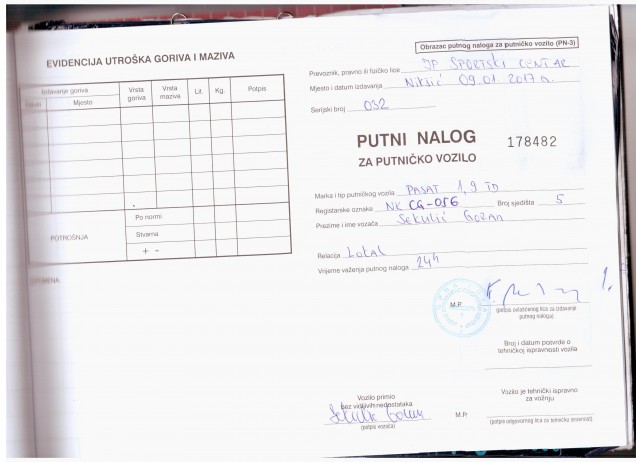 EVIDENCIJA UTROŠKA GORIVA I MAZIVA
Izdavanje goriva
Datum
Mjesto
Vrsta goriva
Vrsta maziva
Lit.
Kg.
Potpis
POTROŠNJA
Po normi
Stvarna
+ -
Obrazac putnog naloga za putničko vozilo (PN-3)
Prevoznik, pravno ili fizičko lice JP SPORTSKI CENTAR
Mjesto i datum izdavanja Nikšić 09.01.2017 g.
Serijski broj 032
PUTNI NALOG 178482
ZA PUTNIČKO VOZILO
Marka i tip putničkog vozila PASAT 1,9 TD
Registarske oznake NK CG-056 Broj sjedišta 5
Prezime i ime vozača Sekulić Goran
Relacija Lokal
Vrijeme važenja putnog naloga 24h
M.P.
(potpis ovlašćenog lica za izdavanje
putnog naloga)
Broj i datum potvrde o
tehničkoj ispravnosti vozila
Vozilo primio
bez vidljivih nedostataka
Sekulić Goran
(potpis vozača)
Vozilo je tehnički ispravno
za vožnju
M.P.
(potpis odgovornog lica za tehničku ispravnost)